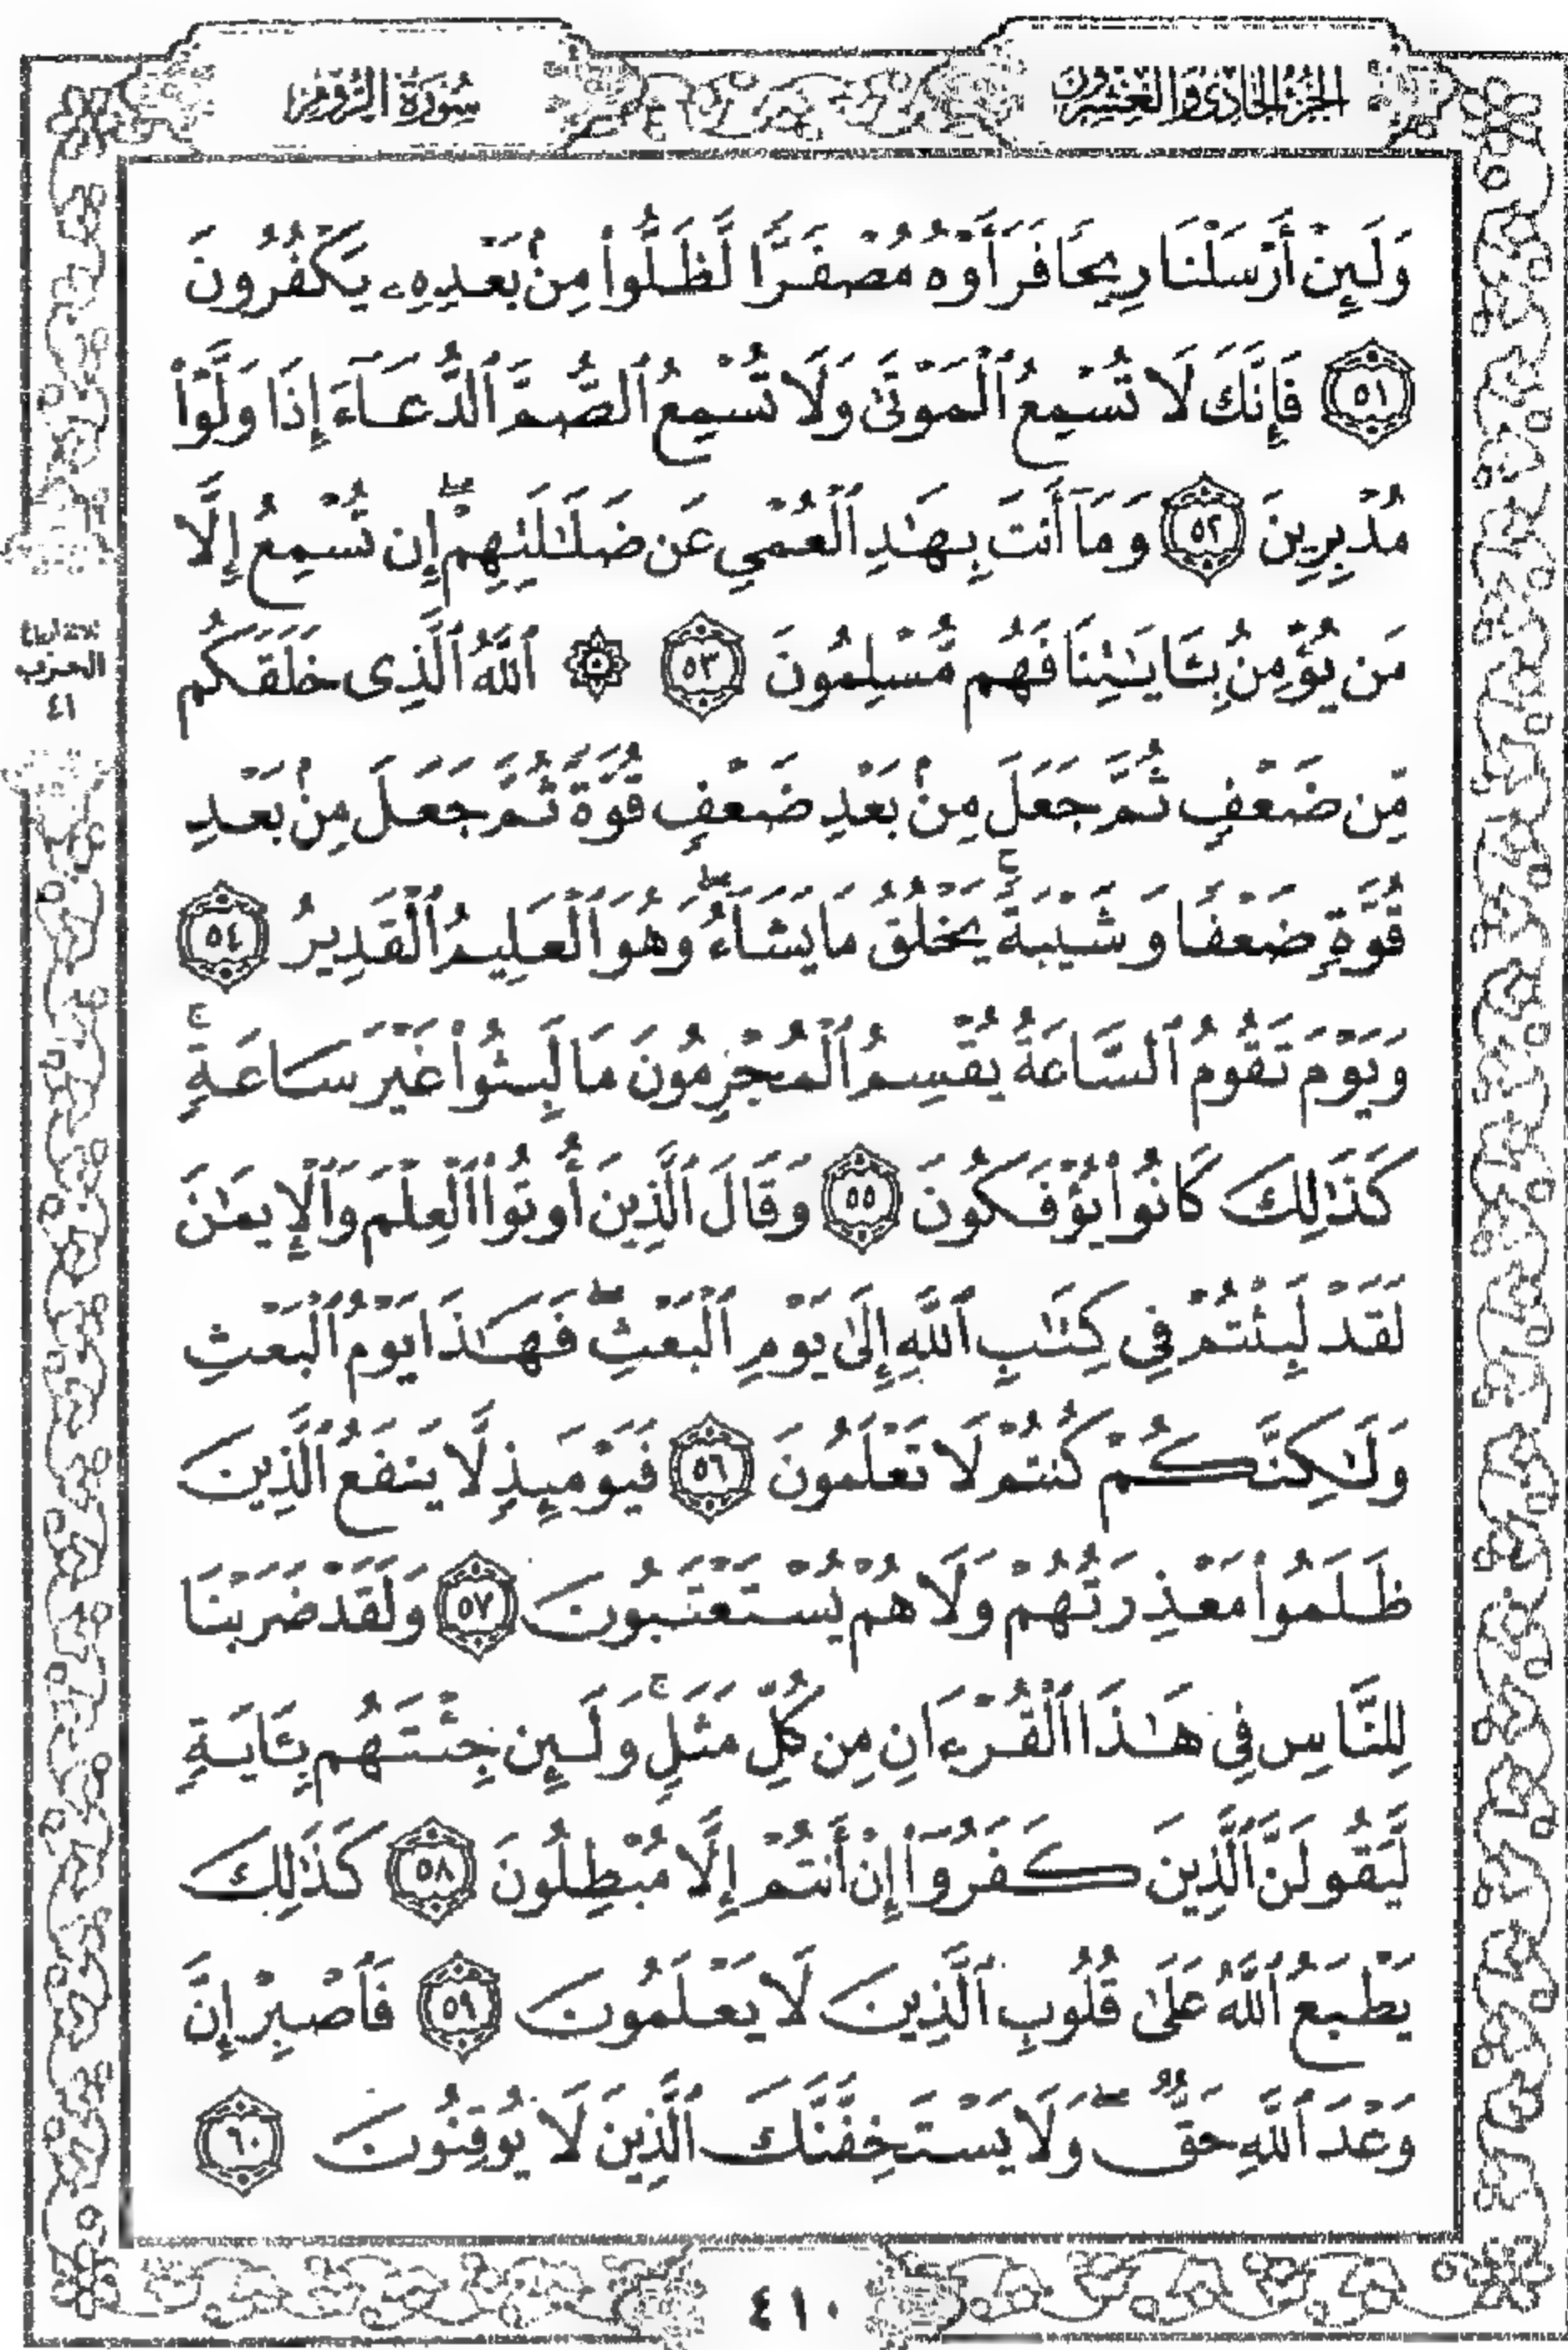 الجزء الحادي والعشرون
سورة الروم
وَلَئِنْ أَرْسَلْنَا رِيحًا فَرَأَوْهُ مُصْفَرًّا لَّظَلُّوا۟ مِنۢ بَعْدِهِۦ يَكْفُرُونَ
﴿٥١﴾ فَإِنَّكَ لَا تُسْمِعُ ٱلْمَوْتَىٰ وَلَا تُسْمِعُ ٱلصُّمَّ ٱلدُّعَآءَ إِذَا وَلَّوْا۟
مُدْبِرِينَ ﴿٥٢﴾ وَمَآ أَنتَ بِهَٰدِ ٱلْعُمْيِ عَن ضَلَٰلَتِهِمْ ۖ إِن تُسْمِعُ إِلَّا
مَن يُؤْمِنُ بِـَٔايَٰتِنَا فَهُم مُّسْلِمُونَ ﴿٥٣﴾ ۞ ٱللَّهُ ٱلَّذِى خَلَقَكُم
مِّن ضَعْفٍ ثُمَّ جَعَلَ مِنۢ بَعْدِ ضَعْفٍ قُوَّةً ثُمَّ جَعَلَ مِنۢ بَعْدِ
قُوَّةٍ ضَعْفًا وَشَيْبَةً ۚ يَخْلُقُ مَا يَشَآءُ ۖ وَهُوَ ٱلْعَلِيمُ ٱلْقَدِيرُ ﴿٥٤﴾
وَيَوْمَ تَقُومُ ٱلسَّاعَةُ يُقْسِمُ ٱلْمُجْرِمُونَ مَا لَبِثُوا۟ غَيْرَ سَاعَةٍ ۚ
كَذَٰلِكَ كَانُوا۟ يُؤْفَكُونَ ﴿٥٥﴾ وَقَالَ ٱلَّذِينَ أُوتُوا۟ ٱلْعِلْمَ وَٱلْإِيمَٰنَ
لَقَدْ لَبِثْتُمْ فِى كِتَٰبِ ٱللَّهِ إِلَىٰ يَوْمِ ٱلْبَعْثِ ۖ فَهَٰذَا يَوْمُ ٱلْبَعْثِ
وَلَٰكِنَّكُمْ كُنتُمْ لَا تَعْلَمُونَ ﴿٥٦﴾ فَيَوْمَئِذٍ لَّا يَنفَعُ ٱلَّذِينَ
ظَلَمُوا۟ مَعْذِرَتُهُمْ وَلَا هُمْ يُسْتَعْتَبُونَ ﴿٥٧﴾ وَلَقَدْ ضَرَبْنَا
لِلنَّاسِ فِى هَٰذَا ٱلْقُرْءَانِ مِن كُلِّ مَثَلٍ ۚ وَلَئِن جِئْتَهُم بِـَٔايَةٍ
لَّيَقُولَنَّ ٱلَّذِينَ كَفَرُوٓا۟ إِنْ أَنتُمْ إِلَّا مُبْطِلُونَ ﴿٥٨﴾ كَذَٰلِكَ
يَطْبَعُ ٱللَّهُ عَلَىٰ قُلُوبِ ٱلَّذِينَ لَا يَعْلَمُونَ ﴿٥٩﴾ فَٱصْبِرْ إِنَّ
وَعْدَ ٱللَّهِ حَقٌّ ۖ وَلَا يَسْتَخِفَّنَّكَ ٱلَّذِينَ لَا يُوقِنُونَ ﴿٦٠﴾
الحزب
٤١
٤١٠